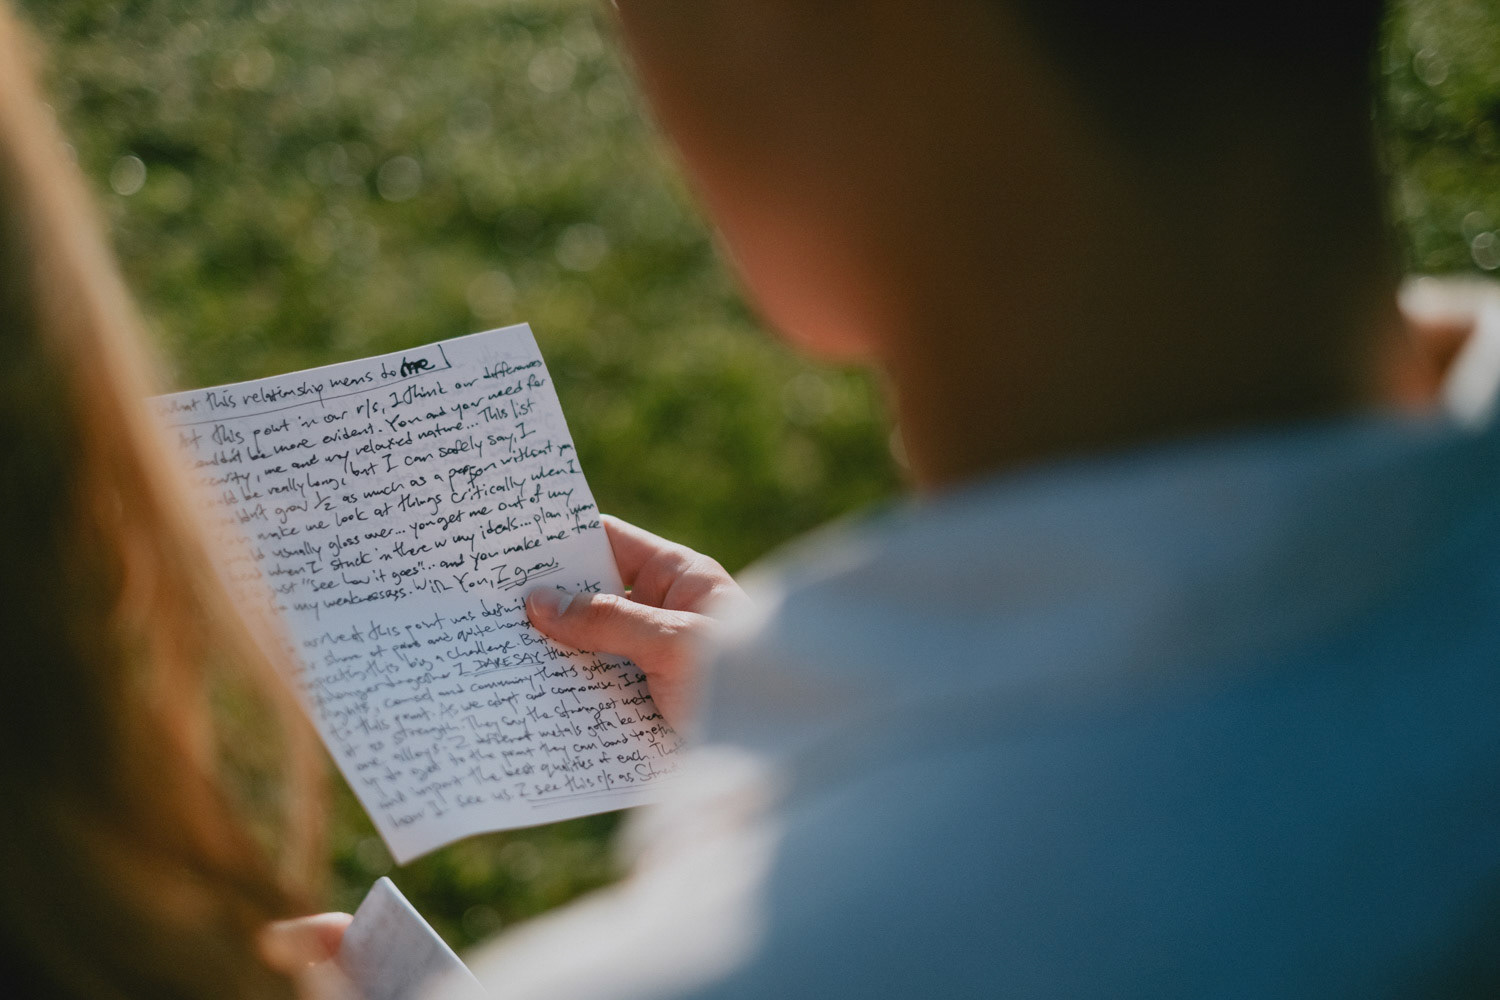 what this relationship means to me
At this point in our r/s, I think our differences
couldn't be more evident. You and your need for
security, me and my relaxed nature... This list
could be really long, but I can safely say, I
wouldn't grow 1/2 as much as a person without you
make me look at things critically when I
usually gloss over... you get me out of my
head when I stuck in there w my ideals... plan, when
just "see how it goes"... and you make me face
my weaknesses. With You, I grow.
this point was definit its
share of pain and quite hones
this big a challenge. But
together I DARE SAY than
counsel and community that's gotten us
to this point. As we adapt and compromise, I se
it as strength. They say the strongest meta
are alloys: 2 different metals gotta be hea
to the point they can bond togeth
and impart the best qualities of each. That's
how I see us. I see this r/s as Stre